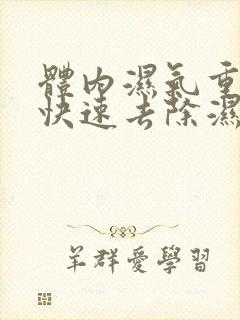 體內濕氣重
快速去除濕
羊群愛學習